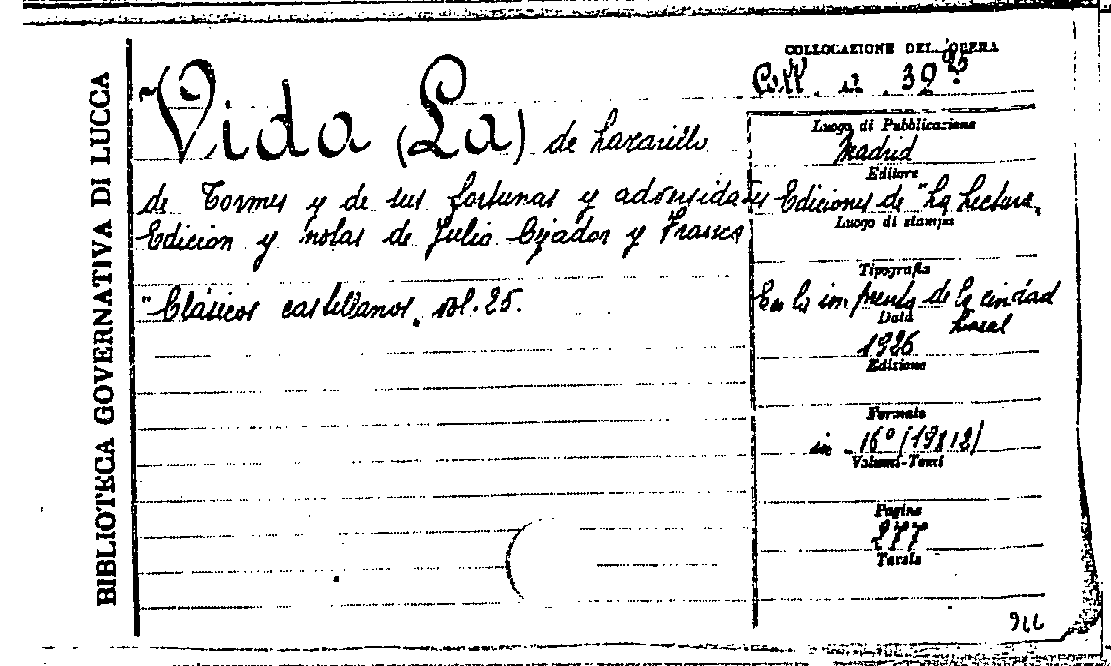 BIBLIOTECA GOVERNATIVA DI LUCCA
Vida (La) de Lazarillo
de Tormes y de sus fortunas y adversidades
Edicion y notas de Julio Cejador y Frauca
"Clásicos castellanos, vol. 25.
COLLOCAZIONE DELL'OPERA
Coll. a. 32 25
Luogo di Pubblicazione
Madrid
Editore
Ediciones de "La Lectura,
Luogo di stampa
Tipografia
En la imprenta de la ciudad
Lineal
Data
1926
Edizione
Formato
in 16° (19x12)
Volumi-Tomi
Pagine
277
Tavole